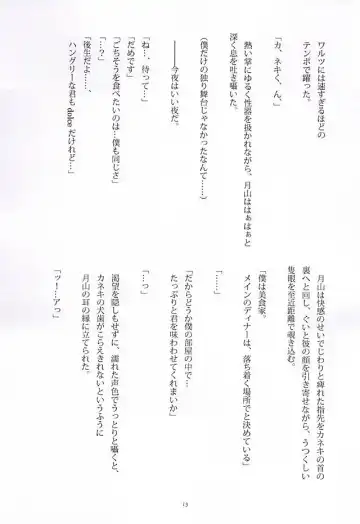 ワルツには速すぎるほどの
テンポで躍った。
「カ、ネキ、く、ん」
熱い掌にゆるく性器を扱かれながら、月山ははぁはぁと
深く息を吐き囁いた。
(僕だけの独り舞台じゃなかったなんて……)
――今夜はいい夜だ。
「ね…、待って…」
「だめです」
「ごちそうを食べたいのは…僕も同じさ」
「…?」
「後生だよ……、
ハングリーな君も dolce だけれど…」
月山は快感のせいでじわりと痺れた指先をカネキの首の
裏へと回し、ぐいと彼の顔を引き寄せながら、うつくしい
隻眼を至近距離で覗き込む。
「僕は美食家。
メインのディナーは、落ち着く場所でと決めている」
「……、」
「だからどうか僕の部屋の中で…
たっぷりと君を味わわせてくれまいか」
「…っ」
渇望を隠しもせずに、濡れた声色でうっとりと囁くと、
カネキの犬歯がこらえきれないというふうに
月山の耳の縁に立てられた。
「ッ!…アっ」
13